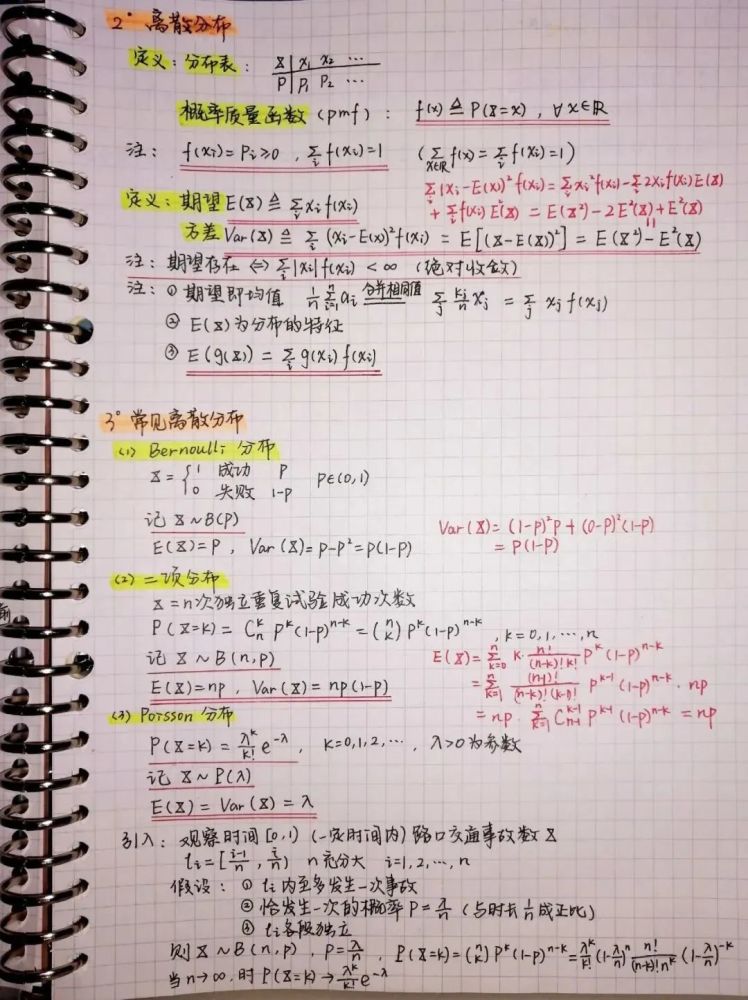 2° 离散分布
定义：分布表： X | x₁ x₂ ⋯
P | p₁ p₂ ⋯
概率质量函数 (pmf)： f(x) ≜ P(X=x) , ∀x∈ℝ
注： f(xᵢ)=Pᵢ≥0 , Σᵢ f(xᵢ)=1 (Σ_{x∈ℝ} f(x)=Σᵢ f(xᵢ)=1)
Σᵢ(xᵢ-E(x))² f(xᵢ)=Σᵢxᵢ²f(xᵢ)-Σᵢ2xᵢf(xᵢ)E(X)
+Σᵢf(xᵢ)E²(X) = E(X²)-2E²(X)+E²(X)
定义：期望 E(X) ≜ Σᵢ xᵢ f(xᵢ)
方差 Var(X) ≜ Σᵢ (xᵢ-E(x))² f(xᵢ) = E[(X-E(X))²] = E(X²)-E²(X)
注：期望存在 ⇔ Σᵢ|xᵢ|f(xᵢ) < ∞ (绝对收敛)
注：① 期望即均值 1/n Σ_{i=1}^{n} aᵢ 合并相同值 Σⱼ kⱼ/n xⱼ = Σⱼ xⱼ f(xⱼ)
② E(X)为分布的特征
③ E(g(X)) = Σᵢ g(xᵢ) f(xᵢ)
3° 常见离散分布
(1) Bernoulli 分布
X = { 1 成功 p
0 失败 1-p p∈(0,1)
记 X~B(p)
E(X)=p , Var(X)=p-p²=p(1-p)
Var(X)=(1-p)²p+(0-p)²(1-p)
= p(1-p)
(2) 二项分布
X=n次独立重复试验成功次数
P(X=k) = Cₙᵏ pᵏ(1-p)ⁿ⁻ᵏ = (n k) pᵏ(1-p)ⁿ⁻ᵏ , k=0,1,⋯,n
记 X~B(n,p)
E(X)=np , Var(X)=np(1-p)
E(X)=Σ_{k=0}^{n} k·n!/((n-k)!k!) pᵏ(1-p)ⁿ⁻ᵏ
=Σ_{k=1}^{n} (n-1)!/((n-k)!(k-1)!) pᵏ⁻¹(1-p)ⁿ⁻ᵏ·np
=np·Σ_{k=1}^{n} C_{n-1}^{k-1} pᵏ⁻¹(1-p)ⁿ⁻ᵏ = np
(3) Poisson 分布
P(X=k) = λᵏ/k! e^{-λ} , k=0,1,2,⋯ , λ>0为参数
记 X~P(λ)
E(X) = Var(X) = λ
引入：观察时间[0,1) (一定时间内) 路口交通事故数X
tᵢ=[(i-1)/n , i/n) n充分大 i=1,2,⋯,n
假设：① tᵢ内至多发生一次事故
② 恰发生一次的概率 P=λ/n (与时长1/n成正比)
③ tᵢ各段独立
则 X~B(n,p) , p=λ/n , P(X=k)=(n k) pᵏ(1-p)ⁿ⁻ᵏ=λᵏ/k! (1-λ/n)ⁿ n!/((n-k)!nᵏ) (1-λ/n)⁻ᵏ
当n→∞,时 P(X=k)→λᵏ/k! e^{-λ}